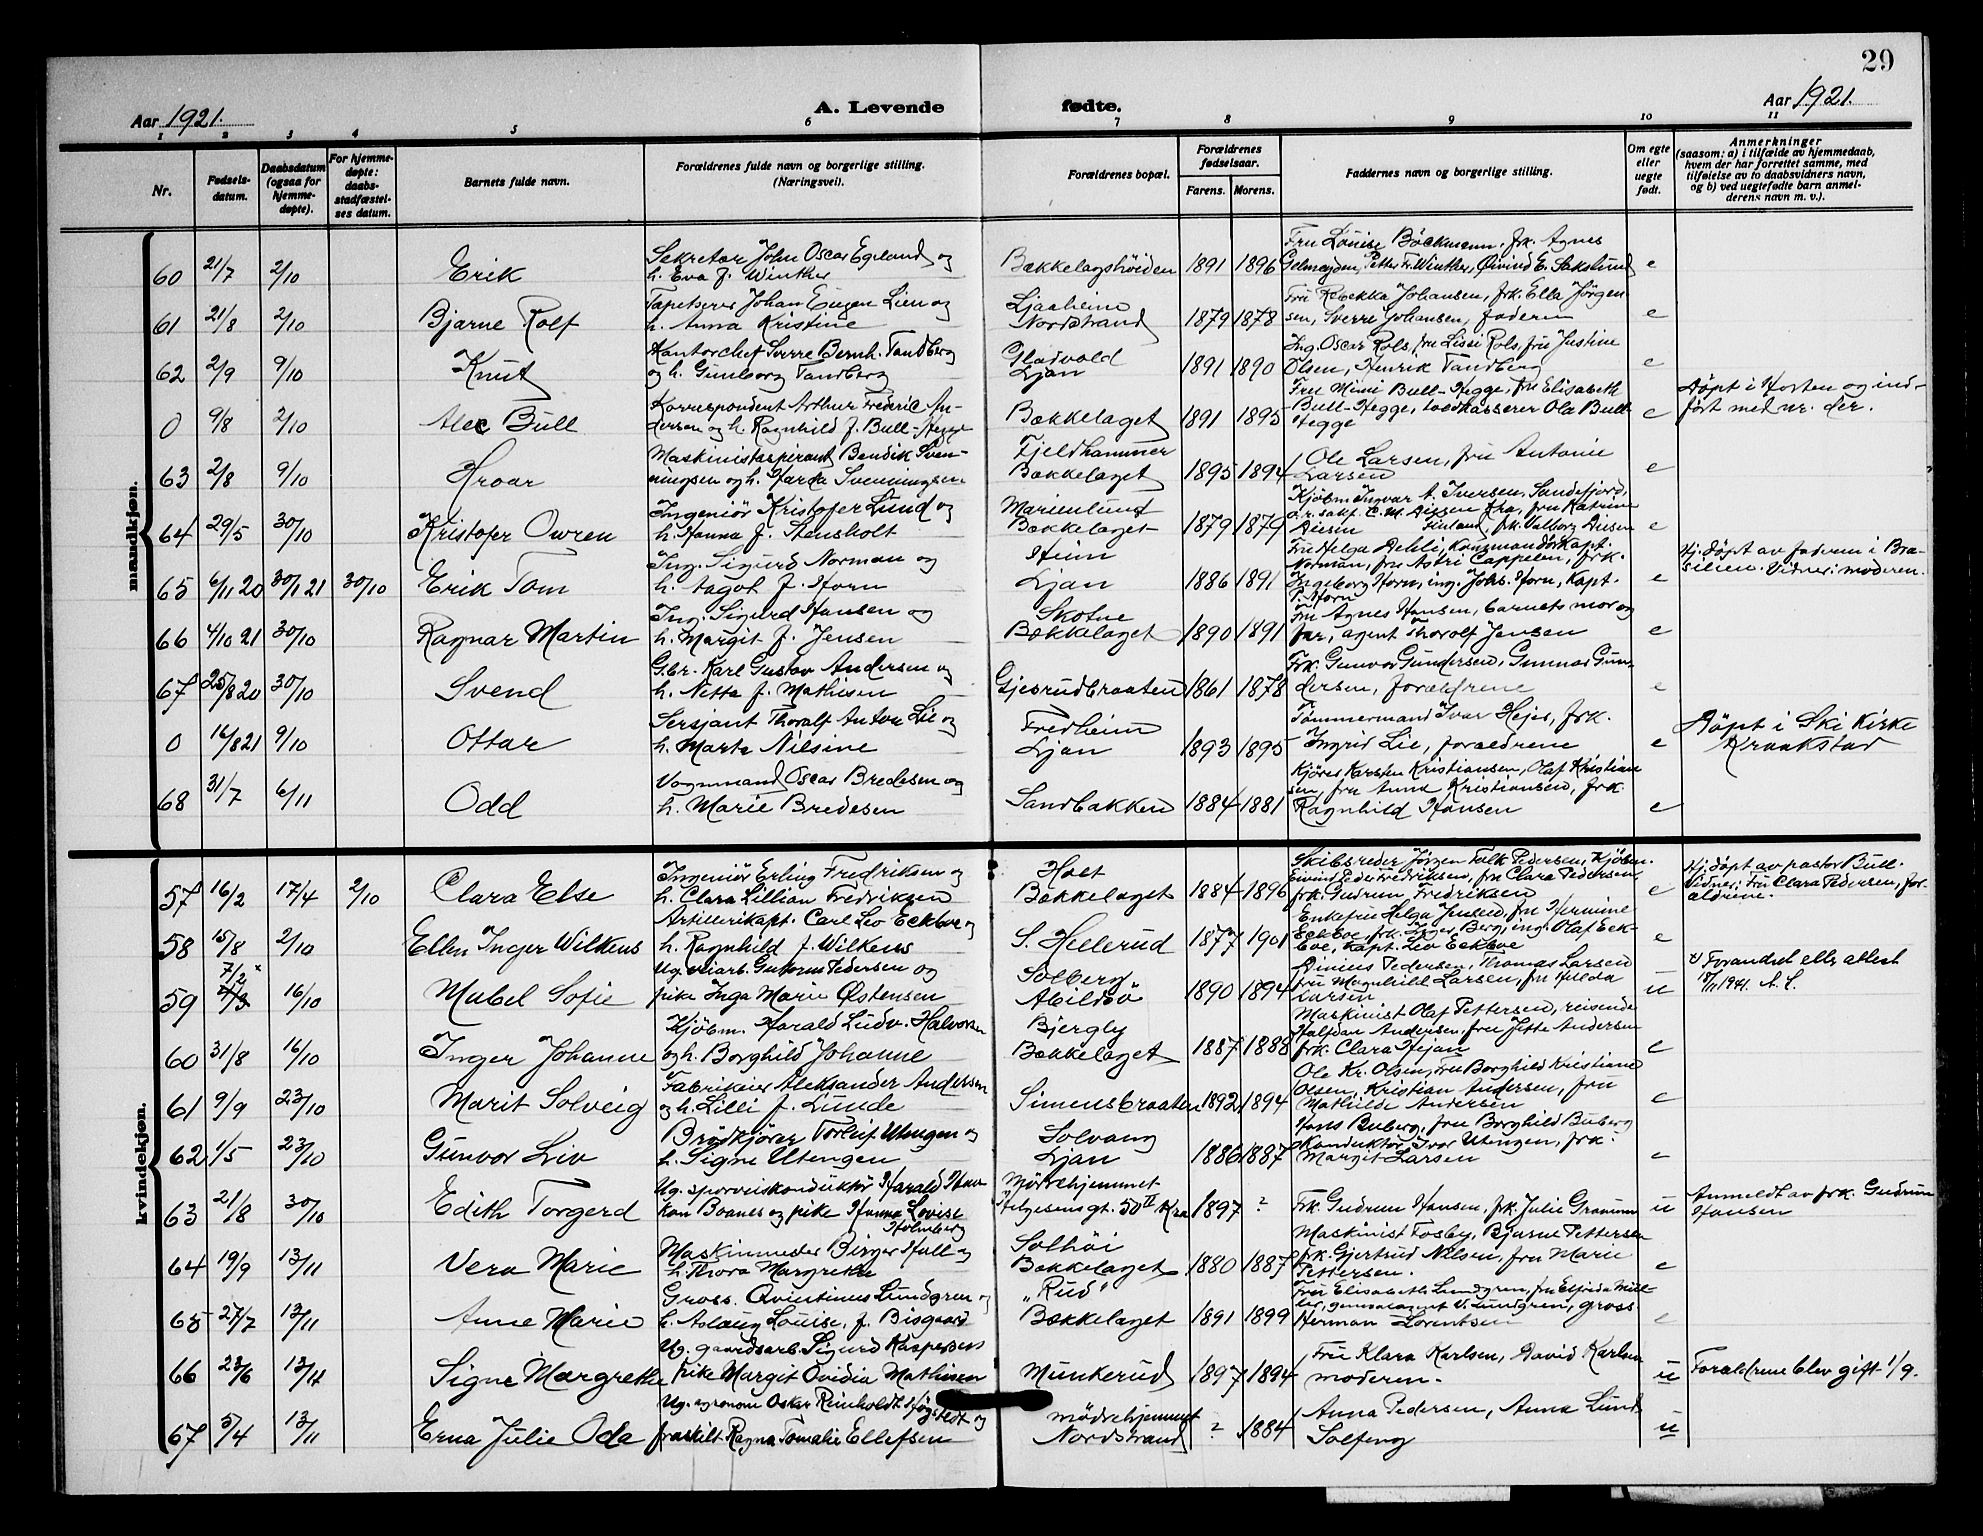 29
Aar 1921.
A. Levende
fødte.
Aar 1921.
1 2 3 4 5 6 7 8 9 10 11
Nr.
Fødsels-
datum.
Daabsdatum
(ogsaa for
hjemme-
døpte).
For hjemme-
døpte:
daabs-
stadfæstel-
ses datum.
Barnets fulde navn.
Forældrenes fulde navn og borgerlige stilling.
(Næringsvei).
Forældrenes bopæl.
Forældrenes
fødselsaar.
Farens. Morens.
Faddernes navn og borgerlige stilling.
Om egte
eller
uegte
født.
Anmerkninger
(saasom: a) i tilfælde av hjemmedaab,
hvem der har forrettet samme, med
tilføielse av to daabsvidners navn,
og b) ved uegtefødte barn anmel-
derens navn m. v.).
mandkjøn.
60 21/7 2/10 Erik
Sekretær John Oscar Egeland og
h. Eva f. Winther
Bækkelagshøiden 1891 1896
Fru Louise Böckmann, frk. Agnes
Gelmeyden, Petter Fr. Winther, Øivind E. Sakslund e
61 21/8 2/10 Bjarne Rolf
Tapetserer Johan Eugen Lien og
h. Anna Kristine
Ljanheim
Nordstrand 1879 1878
Fru Rebekka Johansen, frk. Ella Jörgen
sen, Sverre Johansen, faderen e
62 2/9 9/10 Knut
Kontorchef Sverre Bernh. Tandberg
og h. Gunborg Tandberg
Gladvold
Ljan 1891 1890
Ing. Oscar Rols, fru Lissi Rols, fru Justine
Olsen, Henrik Tandberg e
0 9/8 2/10 Alex Bull
Korrespondent Arthur Frederic An-
dersen og h. Ragnhild f. Bull-Hegge
Bækkelaget 1891 1895
Fru Mimi Bull-Hegge, fru Elisabeth
Bull-Hegge, toldkasserer Ola Bull
Hegge e
Döpt i Horten og ind-
fört med nr. der.
63 2/8 9/10 Hroar
Maskinistaspirant Bendik Sven-
ningsen og h. Harda Svenningsen
Fjeldhammer
Bækkelaget 1895 1894
Ole Larsen, fru Antonie
Larsen e
64 29/5 30/10 Kristofer Owren
Ingeniör Kristofer Lund og
h. Hanna f. Stensholt
Marienlund
Bækkelaget 1879 1879
Kjöbm. Ingvar A. Iversen, Sandefjord,
o.r.sakf. C. M. fra, fru Katrine
frk. Valborg e
65 6/11 20 30/1 21 30/10 Erik Tom
Ing. Sigurd Norman og
h. Aagot f. Horn
Heim
Ljan 1886 1891
Fru Helga Dehli, Kommandörkapt.
Norman, fru Astri Cappelen, frk.
Ingeborg Horn, ing. Johs. Horn, Kapt.
P. Horn e
Hj. döpt av faderen i Bra-
silien. Vidner: moderen.
66 4/10 21 30/10 Ragnar Martin
Ing. Sigurd Hansen og
h. Margit f. Jensen
Skotne
Bækkelaget 1890 1891
Fru Agnes Hansen, barnets mor og
far, agent Thorolf Jensen e
67 25/8 20 30/10 Svend
Gbr. Karl Gustav Andersen og
h. Netta f. Mathisen
Gjesrudbraaten 1861 1878
Frk. Gunvor Gundersen, Gunnar Gun-
dersen, forældrene e
0 16/8 21 9/10 Ottar
Sersjant Thoralf Anton Lie og
h. Marta Nilsine
Fredheim
Ljan 1893 1895
Tömmermand Ivar Hejer, frk.
Ingrid Lie, forældrene e
Döpt i Ski kirke
Kraakstad
68 31/7 6/11 Odd
Vognmand Oscar Bredesen og
h. Marie Bredesen
Sandbakken 1884 1881
Kjörer Karsten Kristiansen, Olaf Kristian
sen, fru Anna Kristiansen, frk.
Ragnhild Hansen e
kvindekjøn.
57 16/2 17/4 2/10 Clara Else
Ingeniör Erling Fredriksen og
h. Clara Lillian Fredriksen
Holt
Bækkelaget 1884 1896
Skibsreder Jörgen Falk Pedersen, Kjöbm.
Eivind Peder Fredriksen, fru Clara Pedersen,
frk. Gudrun Fredriksen e
Hj. döpt av pastor Bull.
Vidner: Fru Clara Pedersen, for-
ældrene.
58 15/8 2/10 Ellen Inger Wilkens
Artillerikapt. Carl Leo Eckboe og
h. Ragnhild f. Wilkens
S. Hellerud 1877 1901
Enkefru Helga Jensen, fru Hermine
Eckboe, frk. Inger Berg, ing. Olaf Eck-
boe, Kapt. Leo Eckboe e
59 7/2 × 16/10 Mabel Sofie
Ug. Pedersen og
pike Inga Marie Østensen
Solberg
Abildsö 1890 1894
Dinius Pedersen, Thomas Larsen
fru Magnhild Larsen, fru Hilda
Larsen u
×) Forandret efter attest
18/11 1941. A. S.
60 31/8 16/10 Inger Johanne
Kjöbm. Harald Ludv. Halvorsen
og h. Borghild Johanne
Bjergly
Bækkelaget 1887 1888
Maskinist Olaf Pettersen, reisende
Halfdan Andersen, fru Jette Andersen
frk. Clara Hejan e
61 9/9 23/10 Marit Solveig
Fabrikeier Aleksander Andersen
og h. Lilli f. Lunde
Simensbraaten 1892 1894
Ole Kr. Olsen, fru Borghild Kristiane
Olsen, Kristian Andersen, fru
Mathilde Andersen e
62 1/5 23/10 Gunvor Liv
Brödkjörer Torleif Utengen og
h. Signe Utengen
Solvang
Ljan 1886 1887
Hans Buberg, fru Borghild Buberg
Konduktör Ivar Utengen, frk.
Margit Larsen e
63 21/8 30/10 Edith Torgerd
Ug. sporveiskonduktör Harald Haa-
kon Boanes og pike Hanna Lovise
Holmberg
Mödrehjemmet
Helgesensgt. 50 IV Kra 1897 ?
Frk. Gudrun Hansen, frk. Julie u
Anmeldt av frk. Gudrun
Hansen
64 19/9 13/11 Vera Marie
Maskinmester Birger Hall og
h. Thora Margrethe
Solhöi
Bækkelaget 1880 1887
Maskinist Fosby, Bjarne Pettersen
frk. Gjertrud Nilsen, fru Marie
Pettersen. e
65 27/7 13/11 Anne Marie
Gross. Qvintinus Lundgren og
h. Aslaug Louise, f. Bisgaard
"Rud"
Bækkelaget 1891 1899
Fru Elisabeth Lundgren, fru Elfrida Mül-
ler, generalagent V. Lundgren, gross.
Herman Lorentsen e
66 23/6 13/11 Signe Margrethe
Ug. gaardsarb. Sigurd Kaspersen
pike Margit Ovidia Mathisen
Munkerud 1897 1894
Fru Klara Karlsen, David Karlsen
moderen. u
Forældrene blev gift 1/9.
67 5/4 13/11 Erna Julie Oda
Ug. agronom Oskar Reinholdt Högstedt og
fraskilt Ragna Tomalie Ellefsen
Mödrehjemmet
Nordstrand ? 1884
Anna Pedersen, Anna Lund
Solfeng u